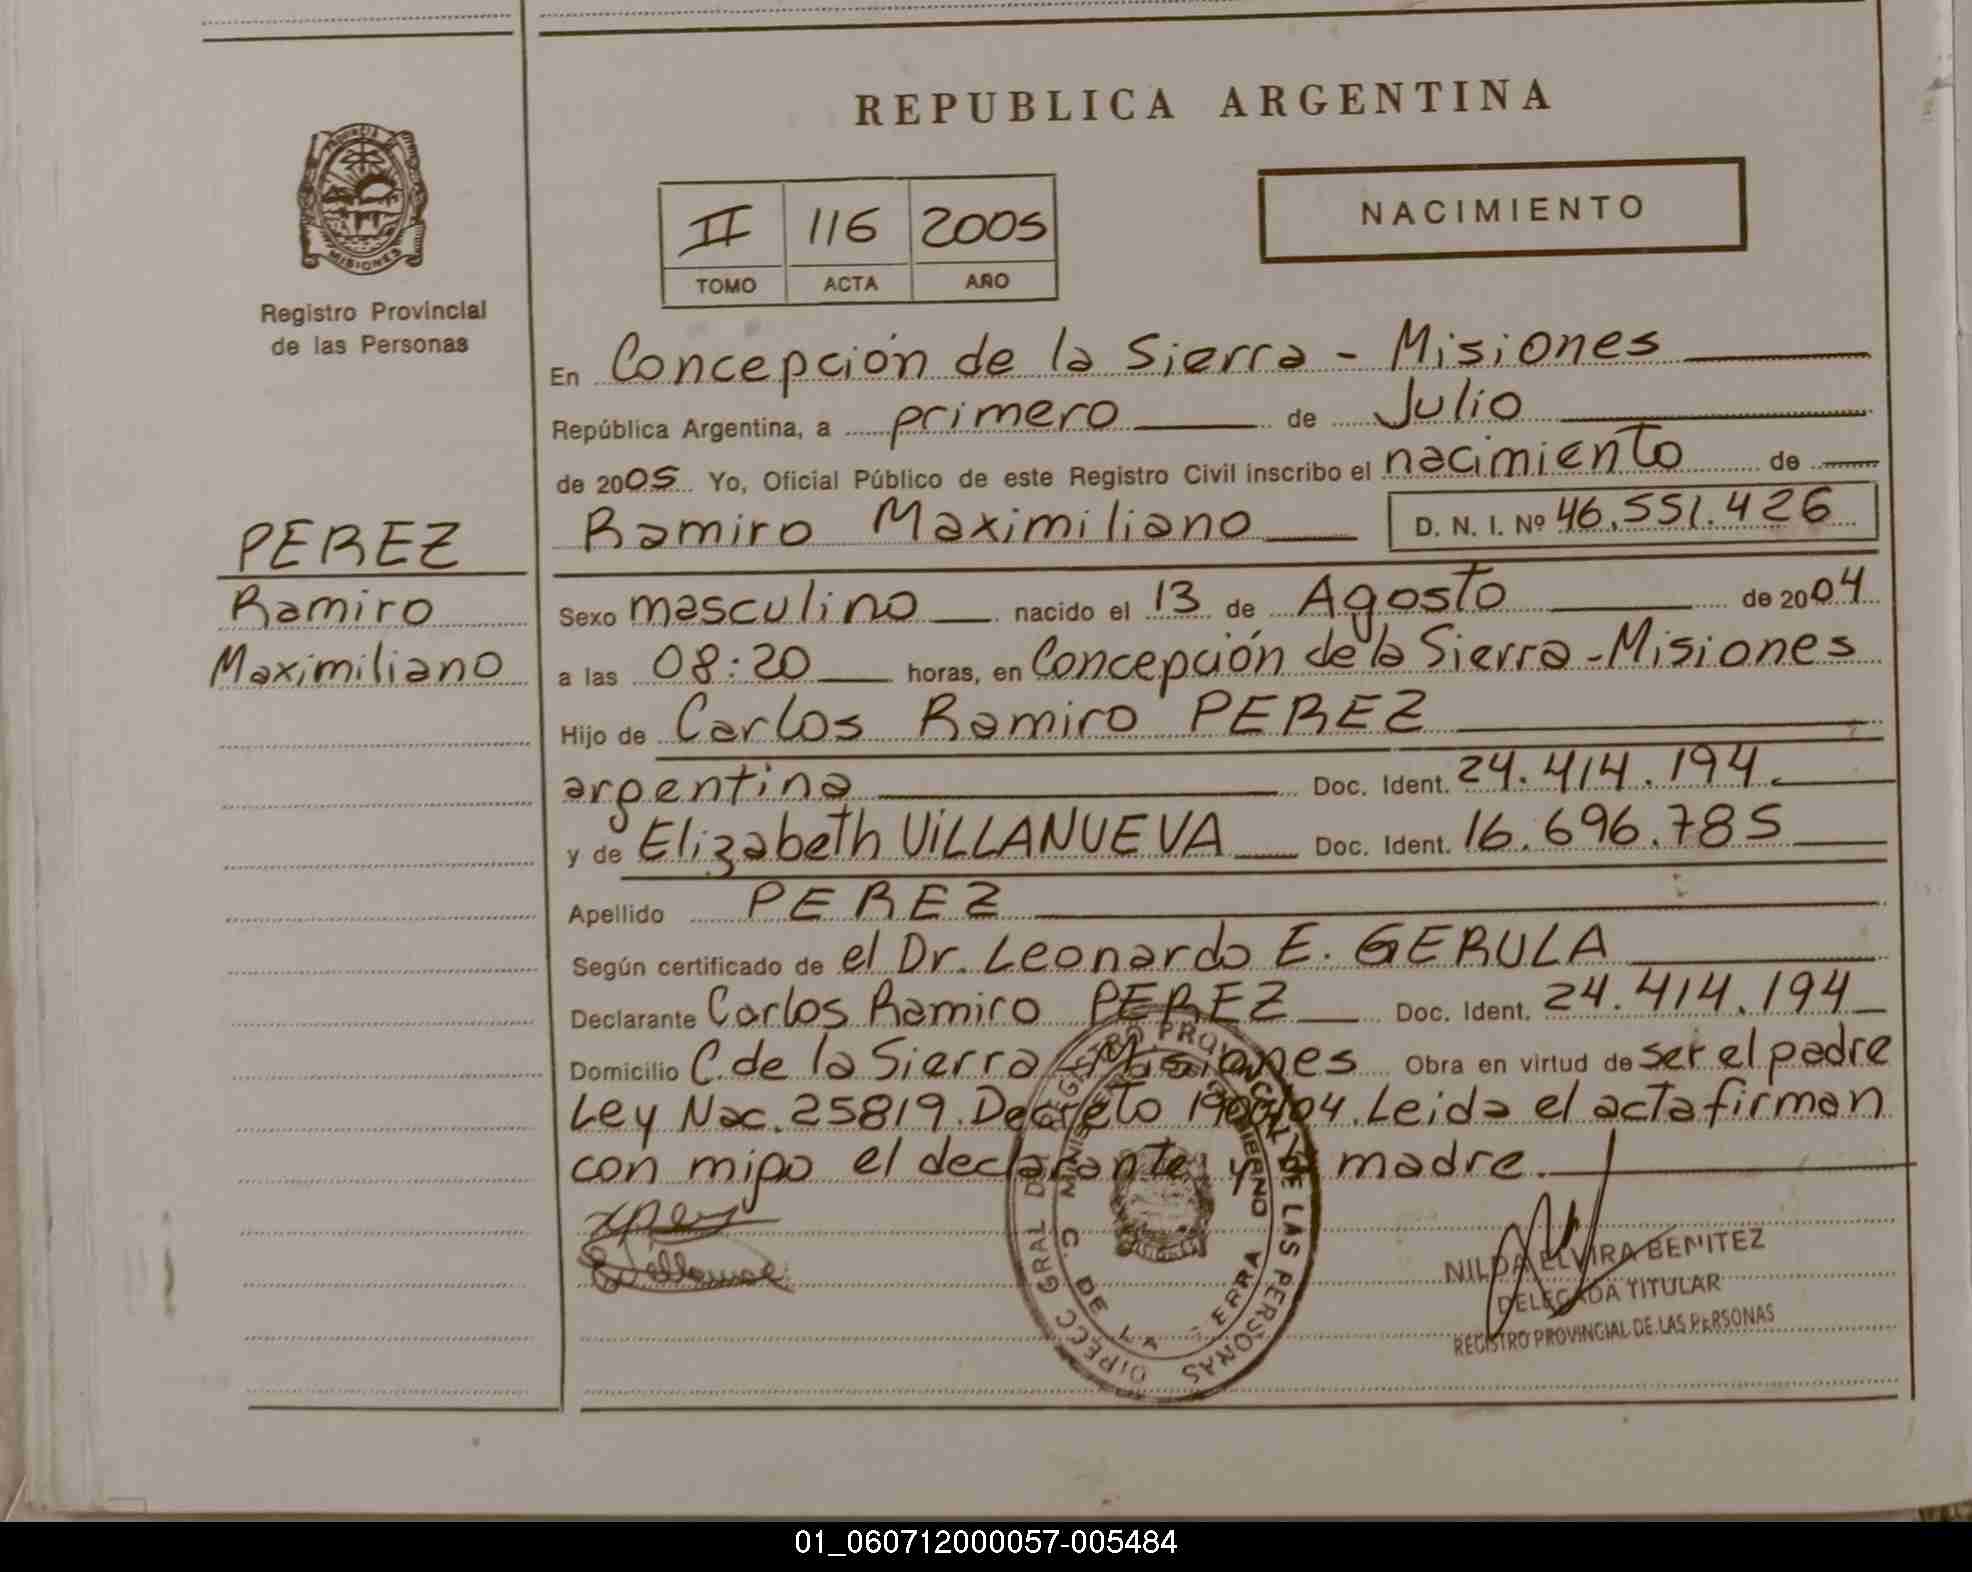 REPUBLICA ARGENTINA
PROVINCIA DE MISIONES
Registro Provincial
de las Personas
II 116 2005
TOMO ACTA AÑO
NACIMIENTO
PEREZ
Ramiro
Maximiliano
En Concepción de la Sierra - Misiones
República Argentina, a primero de Julio
de 2005 Yo, Oficial Público de este Registro Civil inscribo el nacimiento de
Ramiro Maximiliano D. N. I. Nº 46.551.426
Sexo masculino nacido el 13 de Agosto de 2004
a las 08:20 horas, en Concepción de la Sierra - Misiones
Hijo de Carlos Ramiro PEREZ
argentina Doc. Ident. 24.414.194.
y de Elizabeth VILLANUEVA Doc. Ident. 16.696.785
Apellido PEREZ
Según certificado de el Dr. Leonardo E. GERULA
Declarante Carlos Ramiro PEREZ Doc. Ident. 24.414.194
Domicilio C. de la Sierra - Misiones Obra en virtud de ser el padre
Ley Nac. 25819. Decreto /04. Leida el acta firman
con migo el declarante y la madre.
DIRECC GRAL DEL REGISTRO PROVINCIAL DE LAS PERSONAS
C. DE LA SIERRA
NILDA ELVIRA BENITEZ
DELEGADA TITULAR
REGISTRO PROVINCIAL DE LAS PERSONAS
01_060712000057-005484